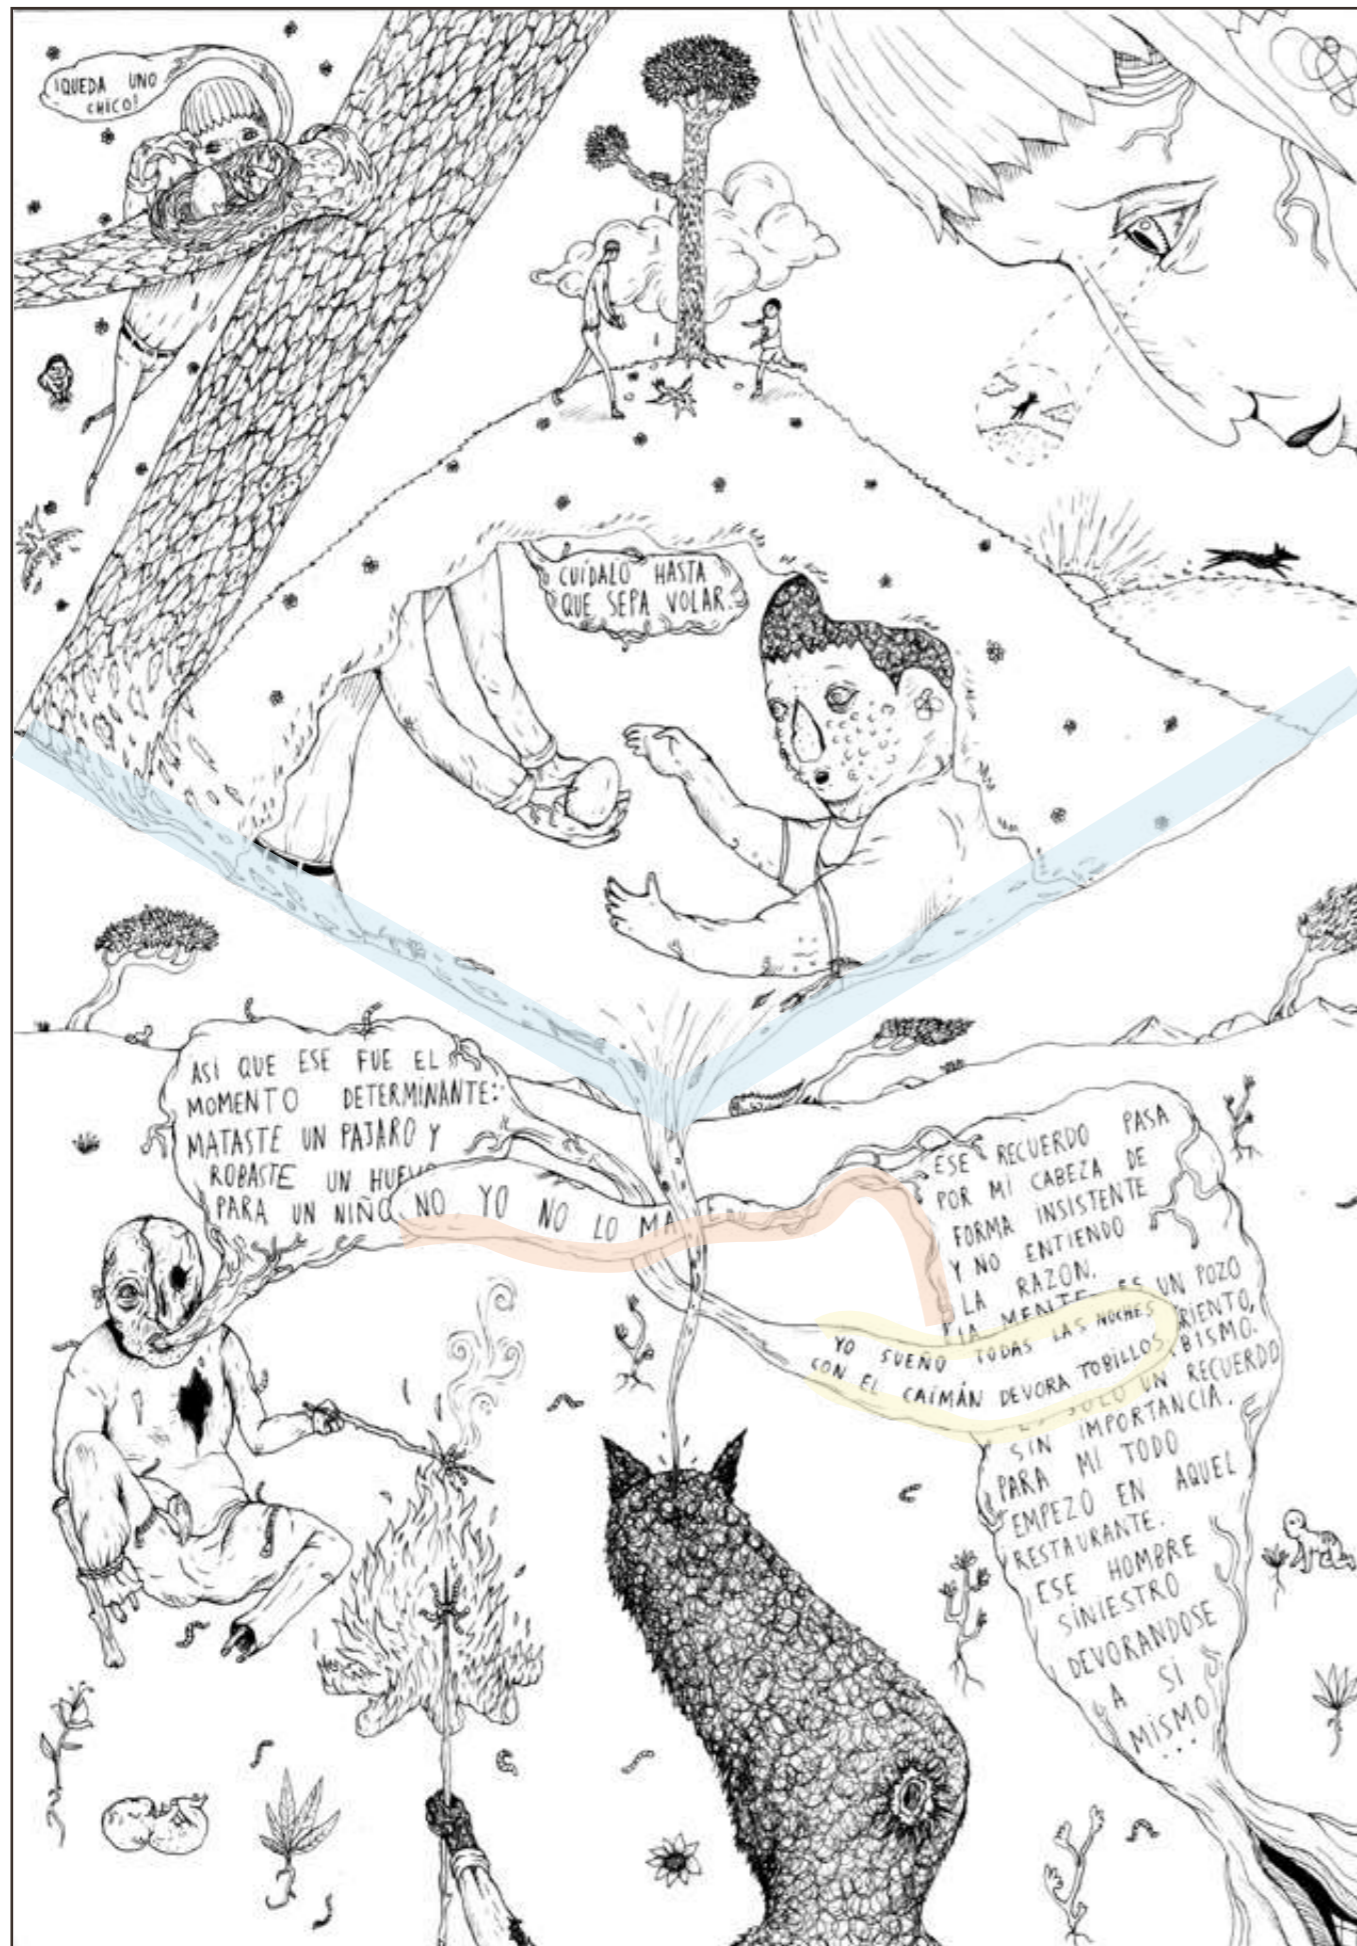 ¡QUEDA UNO
CHICO!
CUÍDALO HASTA
QUE SEPA VOLAR.
ASÍ QUE ESE FUE EL
MOMENTO DETERMINANTE:
MATASTE UN PAJARO Y
ROBASTE UN HUEVO
PARA UN NIÑO
NO, YO NO LO MA
ESE RECUERDO PASA
POR MI CABEZA DE
FORMA INSISTENTE
Y NO ENTIENDO
LA RAZON.
LA MENTE ES UN POZO
RIENTO,
BISMO.
SOLO UN RECUERDO
SIN IMPORTANCIA.
PARA MI TODO
EMPEZÓ EN AQUEL
RESTAURANTE.
ESE HOMBRE
SINIESTRO
DEVORANDOSE
A SÍ
MISMO
...
YO SUEÑO TODAS LAS NOCHES
CON EL CAIMÁN DEVORA TOBILLOS